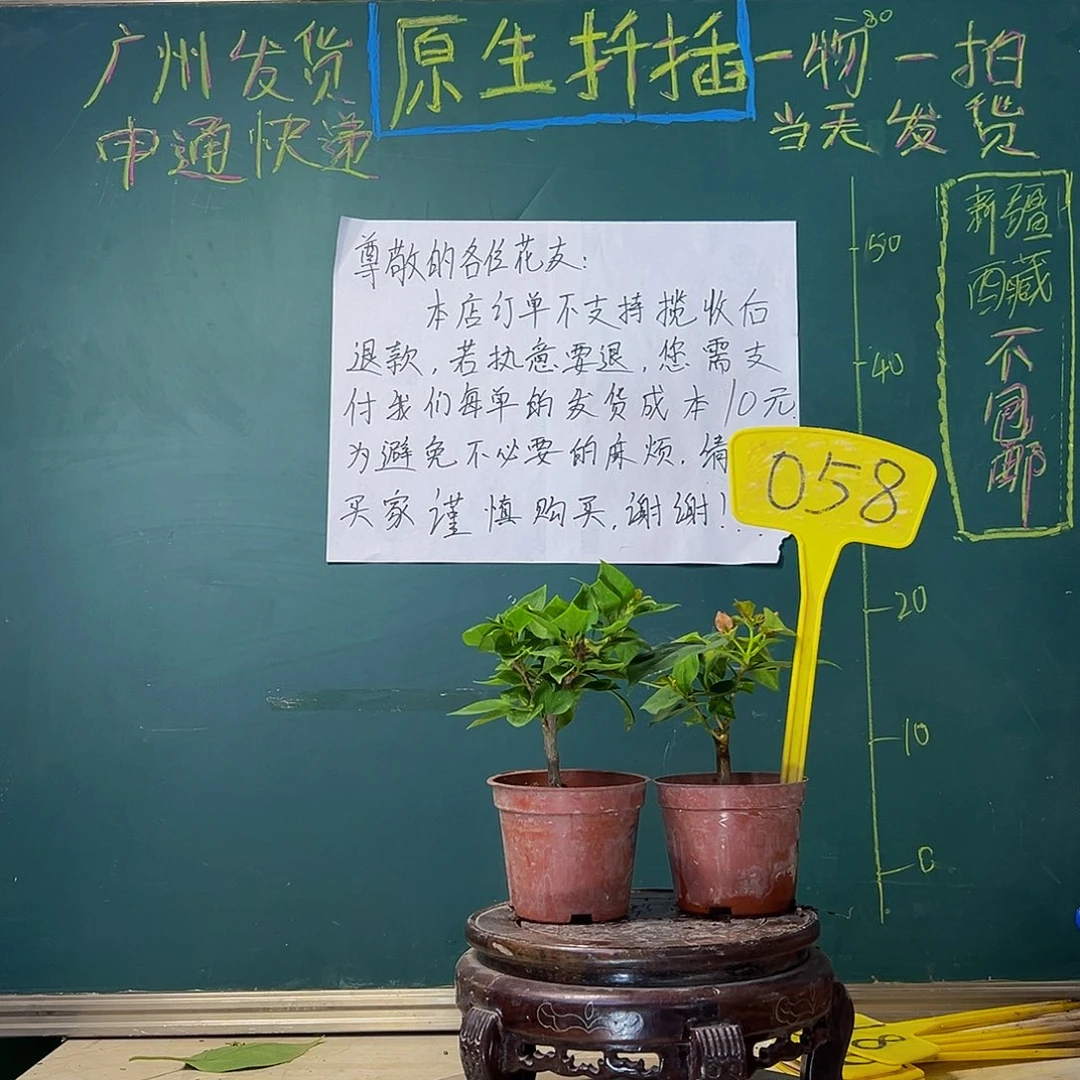 广州发货
申通快递
原生扦插
一物一拍
当天发货
新疆
西藏
不
包
邮
尊敬的各位花友:
本店订单不支持揽收后
退款,若执意要退,您需支
付我们每单的发货成本10元
为避免不必要的麻烦,请
买家谨慎购买,谢谢!
058
50
40
20
10
0